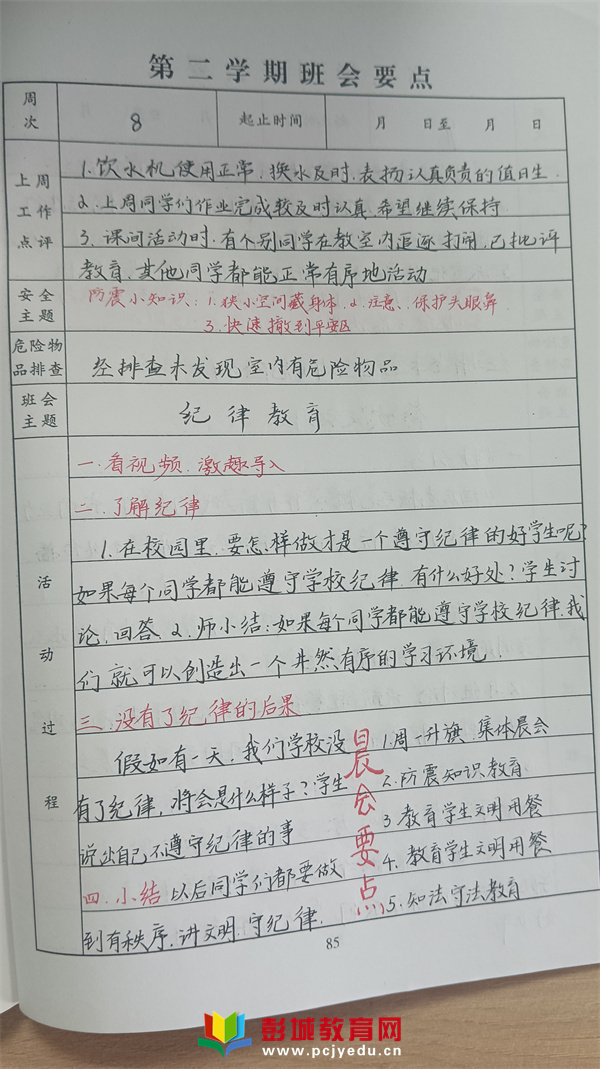 第二学期班会要点
周次 8 起止时间 月 日至 月 日
上周工作点评
1.饮水机使用正常,换水及时,表扬认真负责的值日生.
2.上周同学们作业完成较及时认真,希望继续保持
3.课间活动时,有个别同学在教室内追逐打闹,已批评
教育,其他同学都能正常有序地活动
安全主题
防震小知识:1.狭小空间藏身体,2.注意、保护头眼鼻
3.快速撤到平安区
危险物品排查 经排查未发现室内有危险物品
班会主题 纪律教育
活动过程
一.看视频,激趣导入
二.了解纪律
1.在校园里,要怎样做才是一个遵守纪律的好学生呢?
如果每个同学都能遵守学校纪律,有什么好处?学生讨
论,回答.2.师小结:如果每个同学都能遵守学校纪律,我
们就可以创造出一个井然有序的学习环境.
三.没有了纪律的后果
假如有一天,我们学校没
有了纪律,将会是什么样子?学生
说出自己不遵守纪律的事
四.小结 以后同学们都要做
到有秩序,讲文明,守纪律.
晨会要点
1.周一升旗 集体晨会
2.防震知识教育
3.教育学生文明用餐
4.教育学生文明用餐
5.知法守法教育
85
彭城教育网
www.pcjyedu.cn